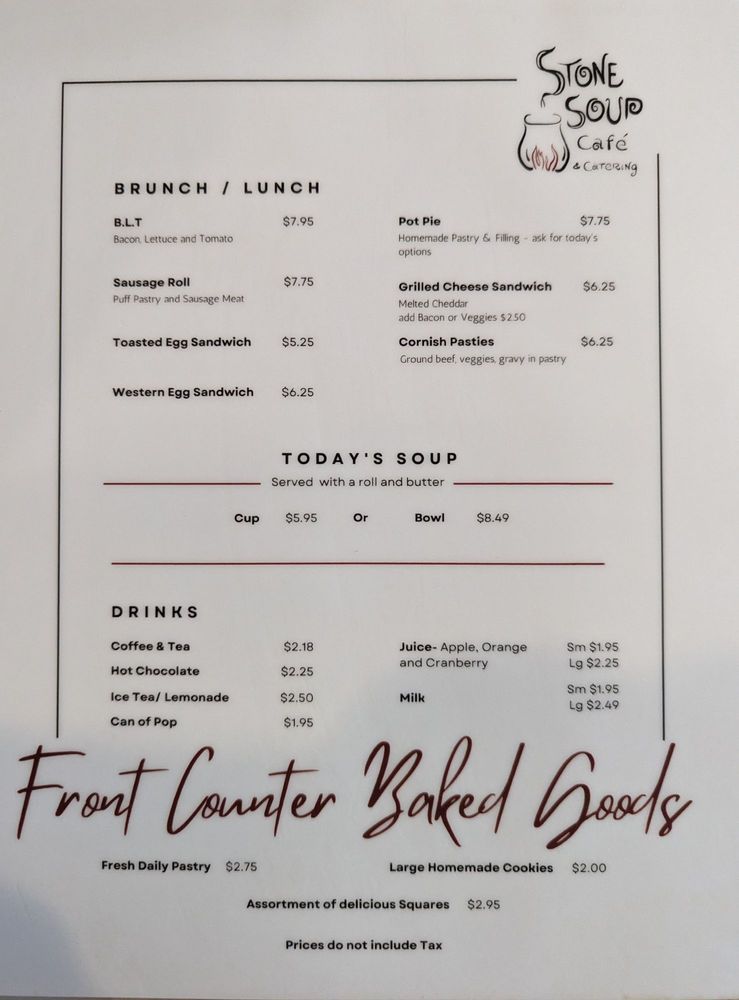 STONE
SOUP
Café
& CATERING
BRUNCH / LUNCH
B.L.T $7.95
Bacon, Lettuce and Tomato
Sausage Roll $7.75
Puff Pastry and Sausage Meat
Toasted Egg Sandwich $5.25
Western Egg Sandwich $6.25
Pot Pie $7.75
Homemade Pastry & Filling - ask for today's
options
Grilled Cheese Sandwich $6.25
Melted Cheddar
add Bacon or Veggies $2.50
Cornish Pasties $6.25
Ground beef, veggies, gravy in pastry
TODAY'S SOUP
Served with a roll and butter
Cup $5.95 Or Bowl $8.49
DRINKS
Coffee & Tea $2.18
Hot Chocolate $2.25
Ice Tea/ Lemonade $2.50
Can of Pop $1.95
Juice- Apple, Orange Sm $1.95
and Cranberry Lg $2.25
Milk Sm $1.95
Lg $2.49
Front Counter Baked Goods
Fresh Daily Pastry $2.75
Large Homemade Cookies $2.00
Assortment of delicious Squares $2.95
Prices do not include Tax